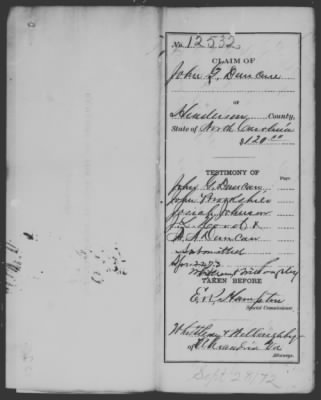 No. 12532
CLAIM OF
John G. Duncan
OF
Henderson County,
State of North Carolina
$120.00
TESTIMONY OF
Page
John G. Duncan
John Brookshire
Josiah Johnson
J. L.
Duncan
Submitted
TAKEN BEFORE
E. R. Hampton
Special Commissioner.
Whittlesey & Willoughby
of Alexandria Va
Attorney.
Sept 28/72